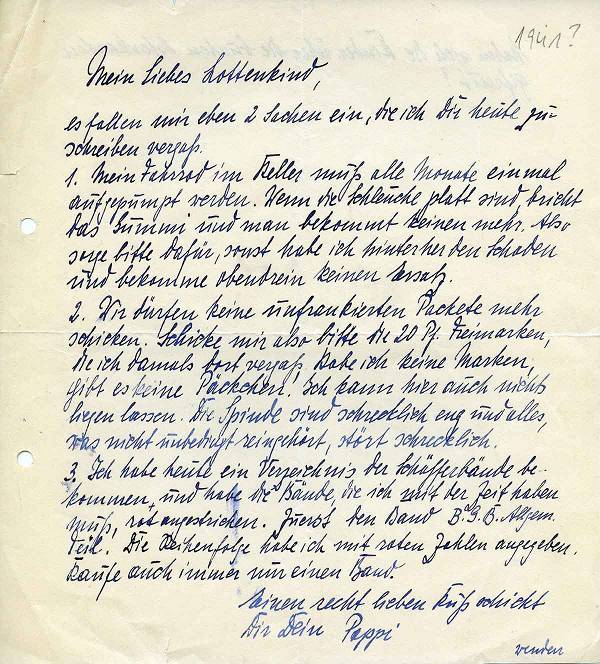 1941?
Mein liebes Lottenkind,
es fallen mir eben 2 Sachen ein, die ich Dir heute zu
schreiben vergaß.
1. Mein Fahrrad im Keller muß alle Monate einmal
aufgepumpt werden. Wenn die Schläuche platt sind, bricht
das Gummi und man bekommt keinen mehr. Also
sorge bitte dafür, sonst habe ich hinterher den Schaden
und bekomme obendrein keinen Ersatz.
2. Wir dürfen keine unfrankierten Packete mehr
schicken. Schicke mir also bitte die 20 Pf. Freimarken,
die ich damals dort vergaß. Habe ich keine Marken,
gibt es keine Päckchen. Ich kann hier auch nichts
liegen lassen. Die Spinde sind schrecklich eng und alles,
was nicht unbedingt reingehört, stört schrecklich.
3. Ich habe heute ein Verzeichnis der Schäfferbände be-
kommen, und habe die Bände, die ich mit der Zeit haben
muß, rot angestrichen. Zuerst den Band B.G.B. Allgem.
Teil. Die Reihenfolge habe ich mit roten Zahlen angegeben.
Kaufe auch immer nur einen Band.
Einen recht lieben Kuß schickt
Dir Dein Pappi
wenden